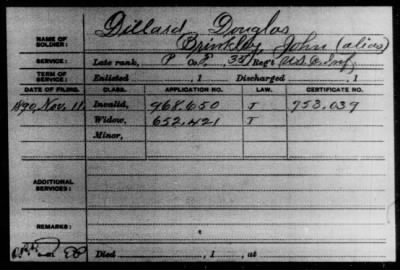 Dillard Douglas,
NAME OF SOLDIER: Brinkley, John (alias)
SERVICE: Late rank, P Co. E, 35 Reg't U.S.C. Inf.
TERM OF SERVICE: Enlisted , 1 Discharged , 1
DATE OF FILING. CLASS. APPLICATION NO. LAW. CERTIFICATE NO.
1890, Nov. 11. Invalid, 968.650 J 753.039
Widow, 652.421 J
Minor,
ADDITIONAL SERVICES:
REMARKS:
Died , 1 , at